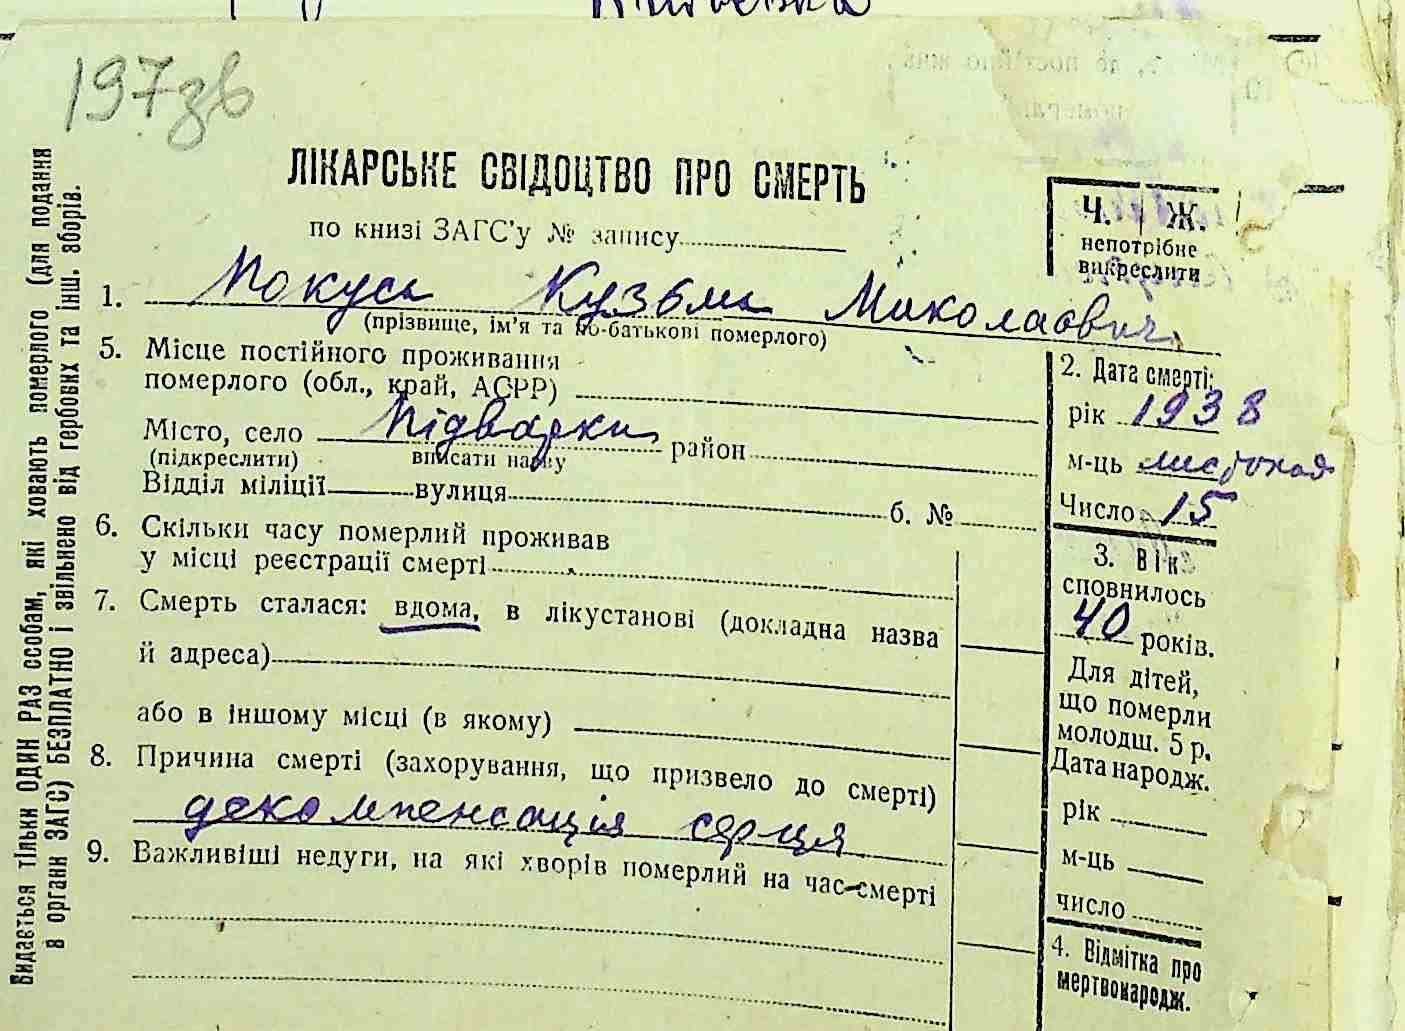 197зв
ЛІКАРСЬКЕ СВІДОЦТВО ПРО СМЕРТЬ
по книзі ЗАГС'у № запису
Ч. Ж.
непотрібне
викреслити
1. Мокусь Кузьма Миколаович
(прізвище, ім'я та по-батькові померлого)
5. Місце постійного проживання
померлого (обл., край, АСРР)
Місто, село Підварки район
(підкреслити) вписати назву
Відділ міліції вулиця б. №
6. Скільки часу померлий проживав
у місці реєстрації смерті
7. Смерть сталася: вдома, в лікустанові (докладна назва
й адреса)
або в іншому місці (в якому)
8. Причина смерті (захорування, що призвело до смерті)
декомпенсація серця
9. Важливіші недуги, на які хворів померлий на час смерті
2. Дата смерті:
рік 1938
м-ць листопад
Число 15
3. Вік
сповнилось
40 років.
Для дітей,
що померли
молодш. 5 р.
Дата народж.
рік
м-ць
число
4. Відмітка про
мертвонародж.
Видається тільки ОДИН РАЗ особам, які ховають померлого (для подання
в органи ЗАГС) БЕЗПЛАТНО і звільнено від гербових та інш. зборів.